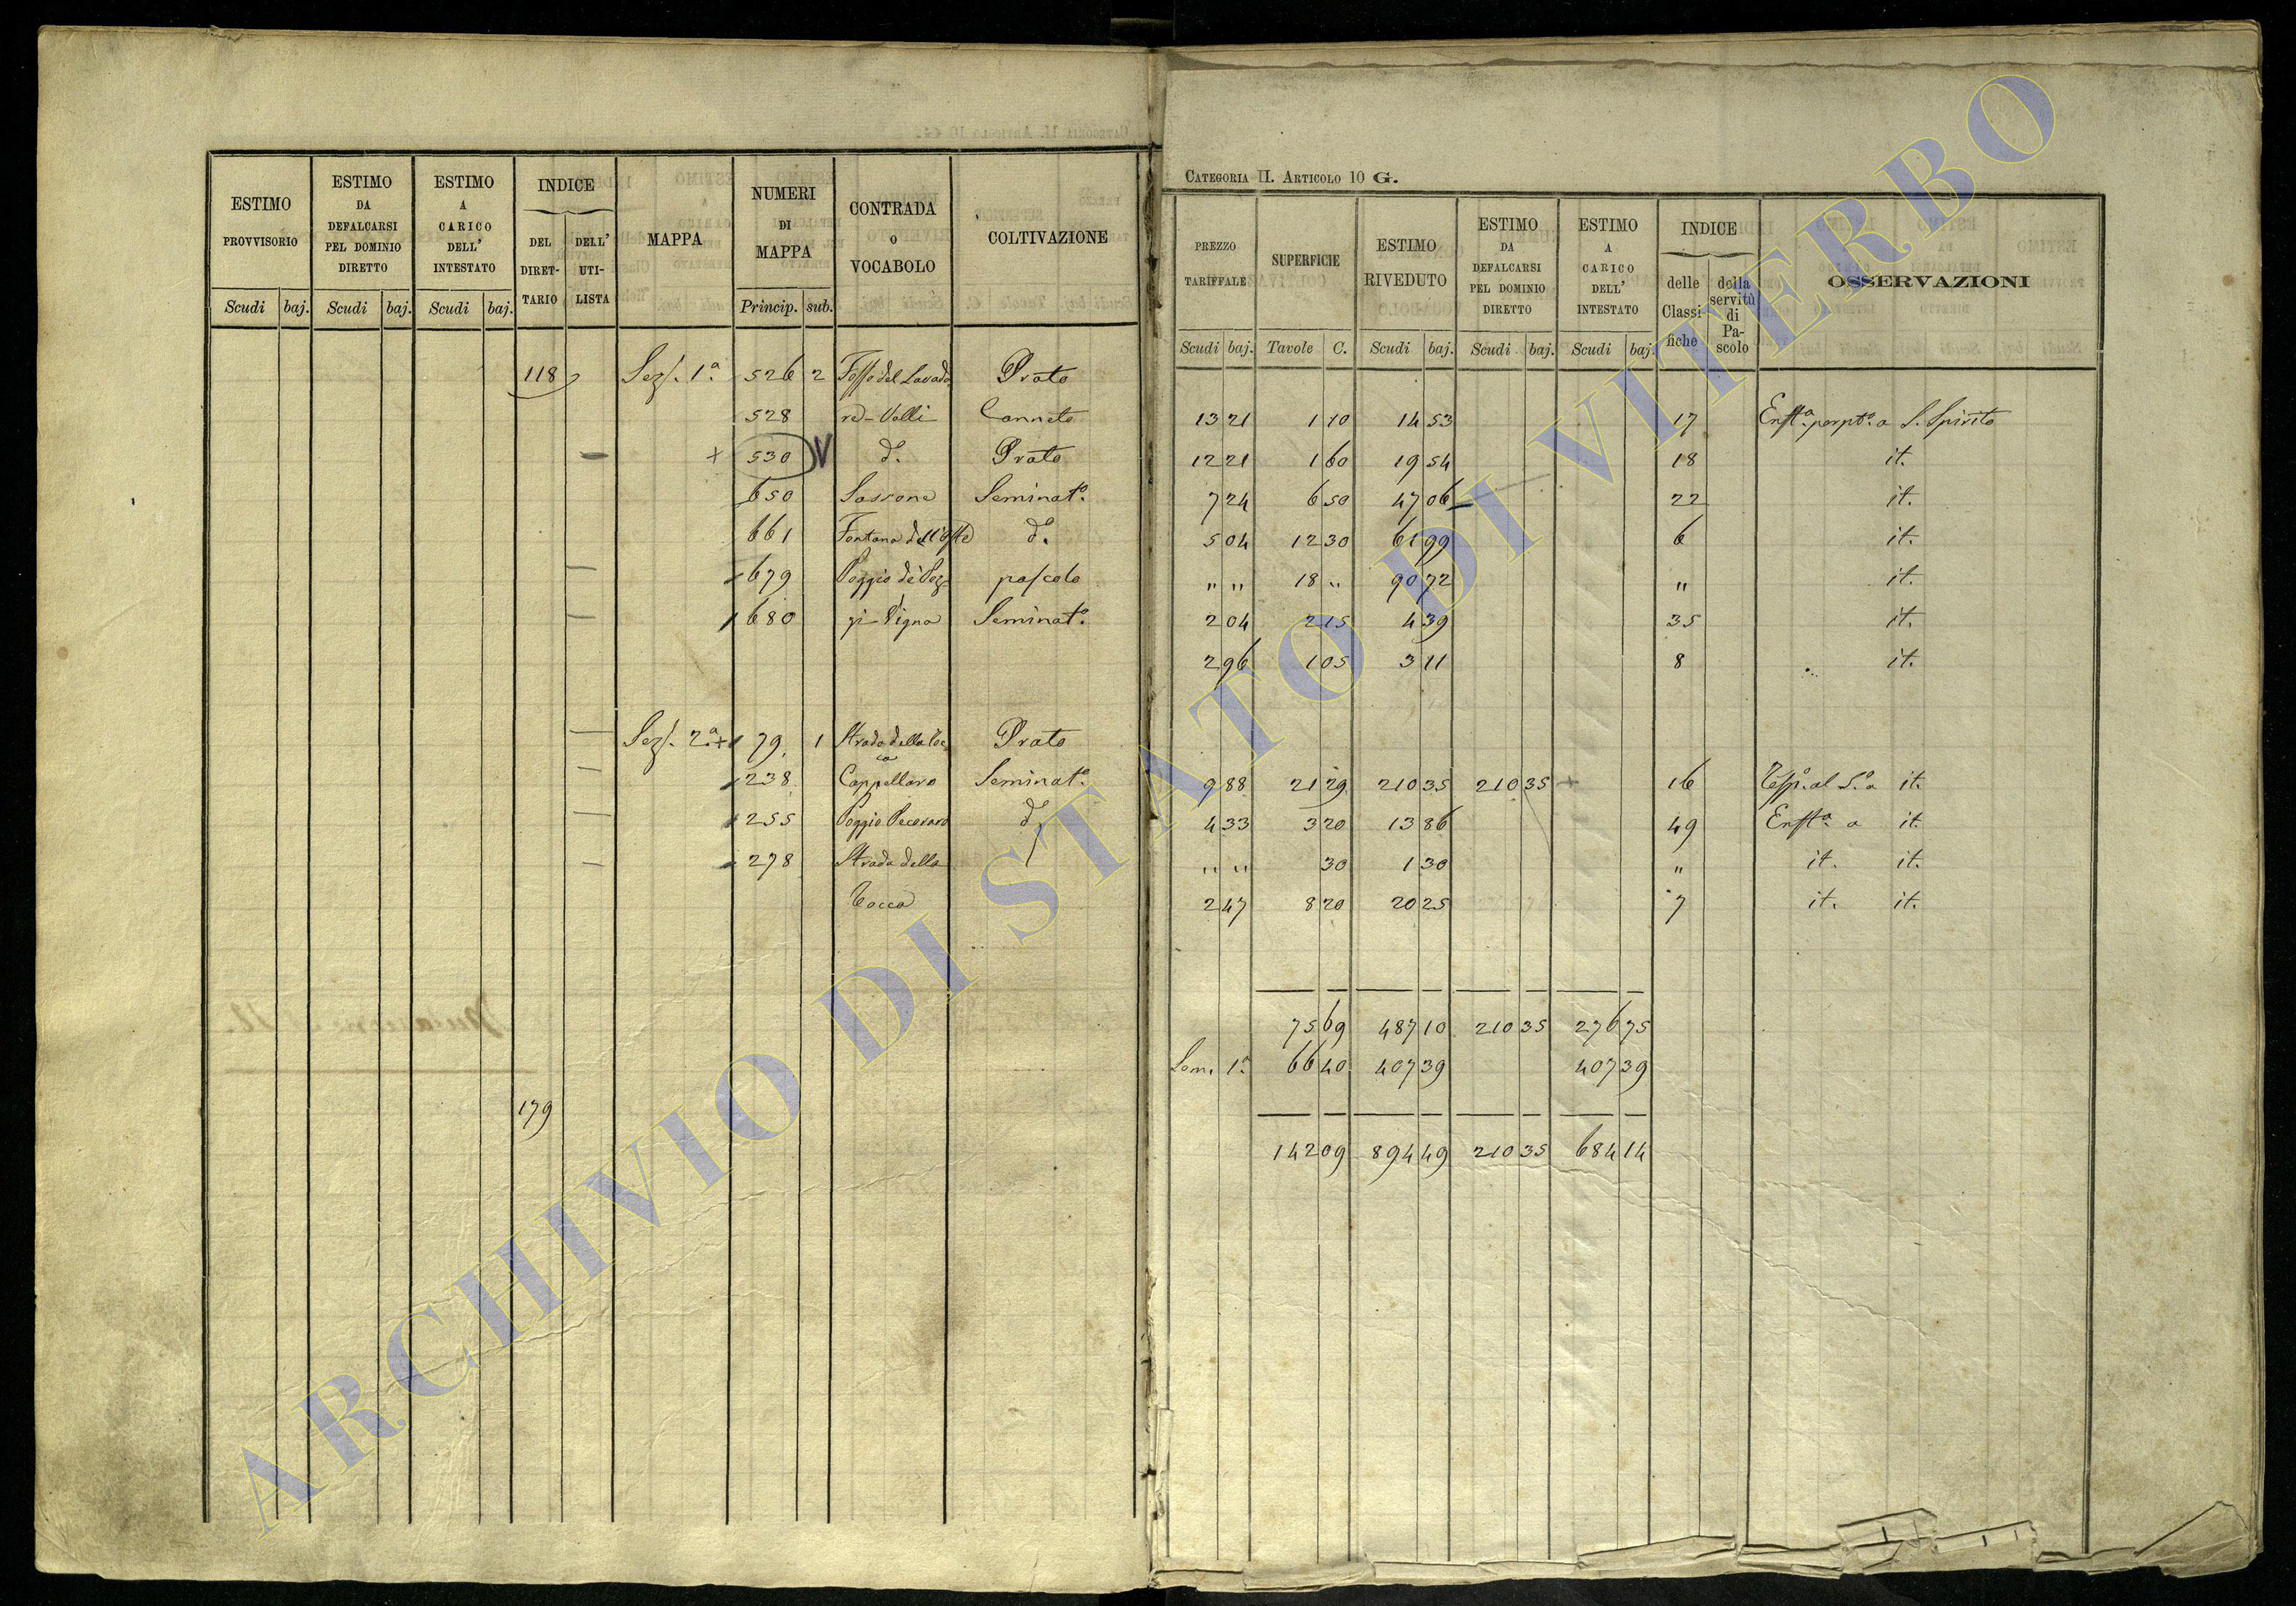 CATEGORIA II. ARTICOLO 10 G.
ESTIMO PROVVISORIO | ESTIMO DA DEFALCARSI PEL DOMINIO DIRETTO | ESTIMO A CARICO DELL' INTESTATO | INDICE DEL DIRETTARIO | DELL' UTILISTA | MAPPA | NUMERI DI MAPPA | CONTRADA O VOCABOLO | COLTIVAZIONE
Scudi baj. Scudi baj. Scudi baj. Princip. sub.
118 Sez. 1.ª 526 2 Fosso del Lavado Prato
528 re-Valli Canneto
+ 530 V d.º Prato
650 Sassone Seminat.º
661 Fontana dell'Oste d.º
679 Poggio de Poz pascolo
680 zi-Vigna Seminat.º
Sez. 2.ª + 79 1 Strada della Roc Prato
ca
238 Cappellaro Seminat.º
255 Poggio Pecoraro d.º
278 Strada della
Rocca
179
PREZZO TARIFFALE | SUPERFICIE | ESTIMO RIVEDUTO | ESTIMO DA DEFALCARSI PEL DOMINIO DIRETTO | ESTIMO A CARICO DELL' INTESTATO | INDICE delle Classifiche | della servitù di Pascolo | OSSERVAZIONI
Scudi baj. Tavole C. Scudi baj. Scudi baj. Scudi baj.
13 21 1 10 14 53 17 Enft.ª perpt.ª a S. Spirito
12 21 1 60 19 54 18 it.
7 24 6 50 47 06 22 it.
5 04 12 30 61 99 6 it.
" " 18 " 90 72 " it.
2 04 2 15 4 39 35 it.
2 96 1 05 3 11 8 it.
9 88 21 29 210 35 210 35 + 16 al S.º a it.
4 33 3 20 13 86 49 Enft.ª a it.
" " 30 1 30 " it. it.
2 47 8 20 20 25 7 it. it.
75 69 487 10 210 35 276 75
Som. 1.ª 66 40 407 39 407 39
142 09 894 49 210 35 684 14
ARCHIVIO DI STATO DI VITERBO